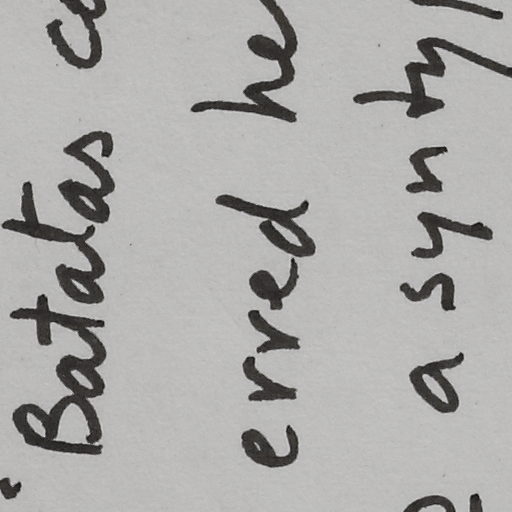 "Batatas ce
erred he
a synty